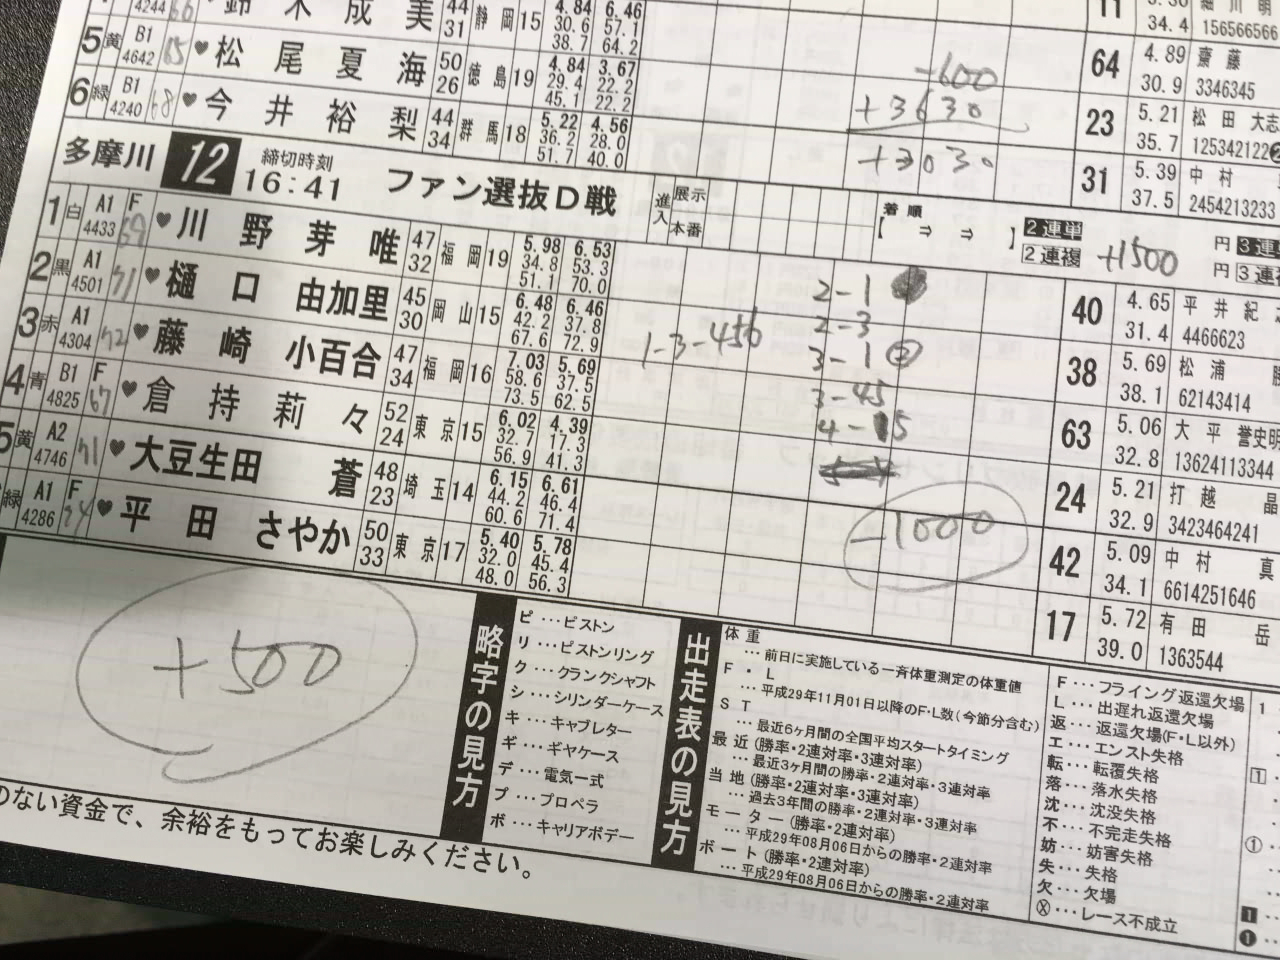 4244 66 鈴木成美 44 31 静岡 15 4.84 30.6 38.7 6.46 57.1 64.2
5 黄 B1 4642 65 ♥ 松尾夏海 50 26 徳島 19 4.84 29.4 45.1 3.67 22.2 22.2
6 緑 B1 4240 68 ♥ 今井裕梨 44 34 群馬 18 5.22 36.2 51.7 4.56 28.0 40.0
-600
+3630
+3030
11 34.4 細川明 156566566
64 4.89 30.9 齋藤 3346345
23 5.21 35.7 松田大志 125342122
31 5.39 37.5 中村 2454213233
多摩川 12 締切時刻 16:41 ファン選抜D戦 進入 展示 本番 着順 【 ⇒ ⇒ 】 2連単 円 3連単
2連複 +1500 円 3連
1 白 A1 F 4433 69 ♥ 川野芽唯 47 32 福岡 19 5.98 34.8 51.1 6.53 53.3 70.0
2 黒 A1 4501 71 ♥ 樋口由加里 45 30 岡山 15 6.48 42.2 67.6 6.46 37.8 72.9
3 赤 A1 4304 72 ♥ 藤崎小百合 47 34 福岡 16 7.03 58.6 73.5 5.69 37.5 62.5
4 青 B1 F 4825 67 ♥ 倉持莉々 52 24 東京 15 6.02 32.7 56.9 4.39 17.3 41.3
5 黄 A2 4746 71 ♥ 大豆生田蒼 48 23 埼玉 14 6.15 44.2 60.6 6.61 46.4 71.4
緑 A1 F 4286 74 ♥ 平田さやか 50 33 東京 17 5.40 32.0 48.0 5.78 45.4 56.3
1-3-456
2-1
2-3
3-1
3-45
4-15
-1000
40 4.65 31.4 平井紀 4466623
38 5.69 38.1 松浦 62143414
63 5.06 32.8 大平誉史明 13624113344
24 5.21 32.9 打越晶 3423464241
42 5.09 34.1 中村真 6614251646
17 5.72 39.0 有田岳 1363544
+500
略字の見方
ピ…ピストン
リ…ピストンリング
ク…クランクシャフト
シ…シリンダーケース
キ…キャブレター
ギ…ギヤケース
デ…電気一式
プ…プロペラ
ボ…キャリアボデー
出走表の見方
体重
…前日に実施している一斉体重測定の体重値
F・L
…平成29年11月01日以降のF・L数(今節分含む)
ST
…最近6ヶ月間の全国平均スタートタイミング
最近(勝率・2連対率・3連対率)
…最近3ヶ月間の勝率・2連対率・3連対率
当地(勝率・2連対率・3連対率)
…過去3年間の勝率・2連対率・3連対率
モーター(勝率・2連対率)
…平成29年08月06日からの勝率・2連対率
ボート(勝率・2連対率)
…平成29年08月06日からの勝率・2連対率
F…フライング返還欠場
L…出遅れ返還欠場
返…返還欠場(F・L以外)
エ…エンスト失格
転…転覆失格
落…落水失格
沈…沈没失格
不…不完走失格
妨…妨害失格
失…失格
欠…欠場
Ⓧ…レース不成立
のない資金で、余裕をもってお楽しみください。